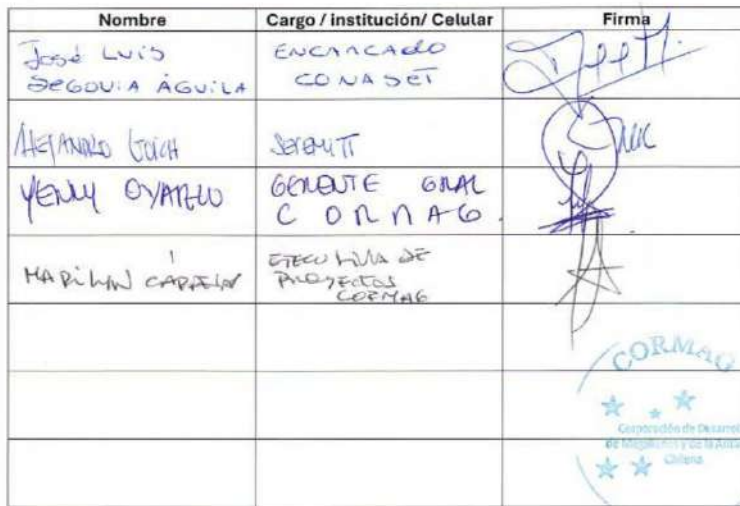 Nombre
Cargo / institución/ Celular
Firma
José LUIS
SEGOVIA ÁGUILA
ENCARGADO
CONASET
ALEJANDRO
SEREMITT
YENNY OYARZO
GERENTE GRAL
CORMAG.
MARILYN
EJECUTIVA DE
PROYECTOS
CORMAG
CORMAG
Corporación de Desarrol
de Magallanes y de la Antár
Chilena